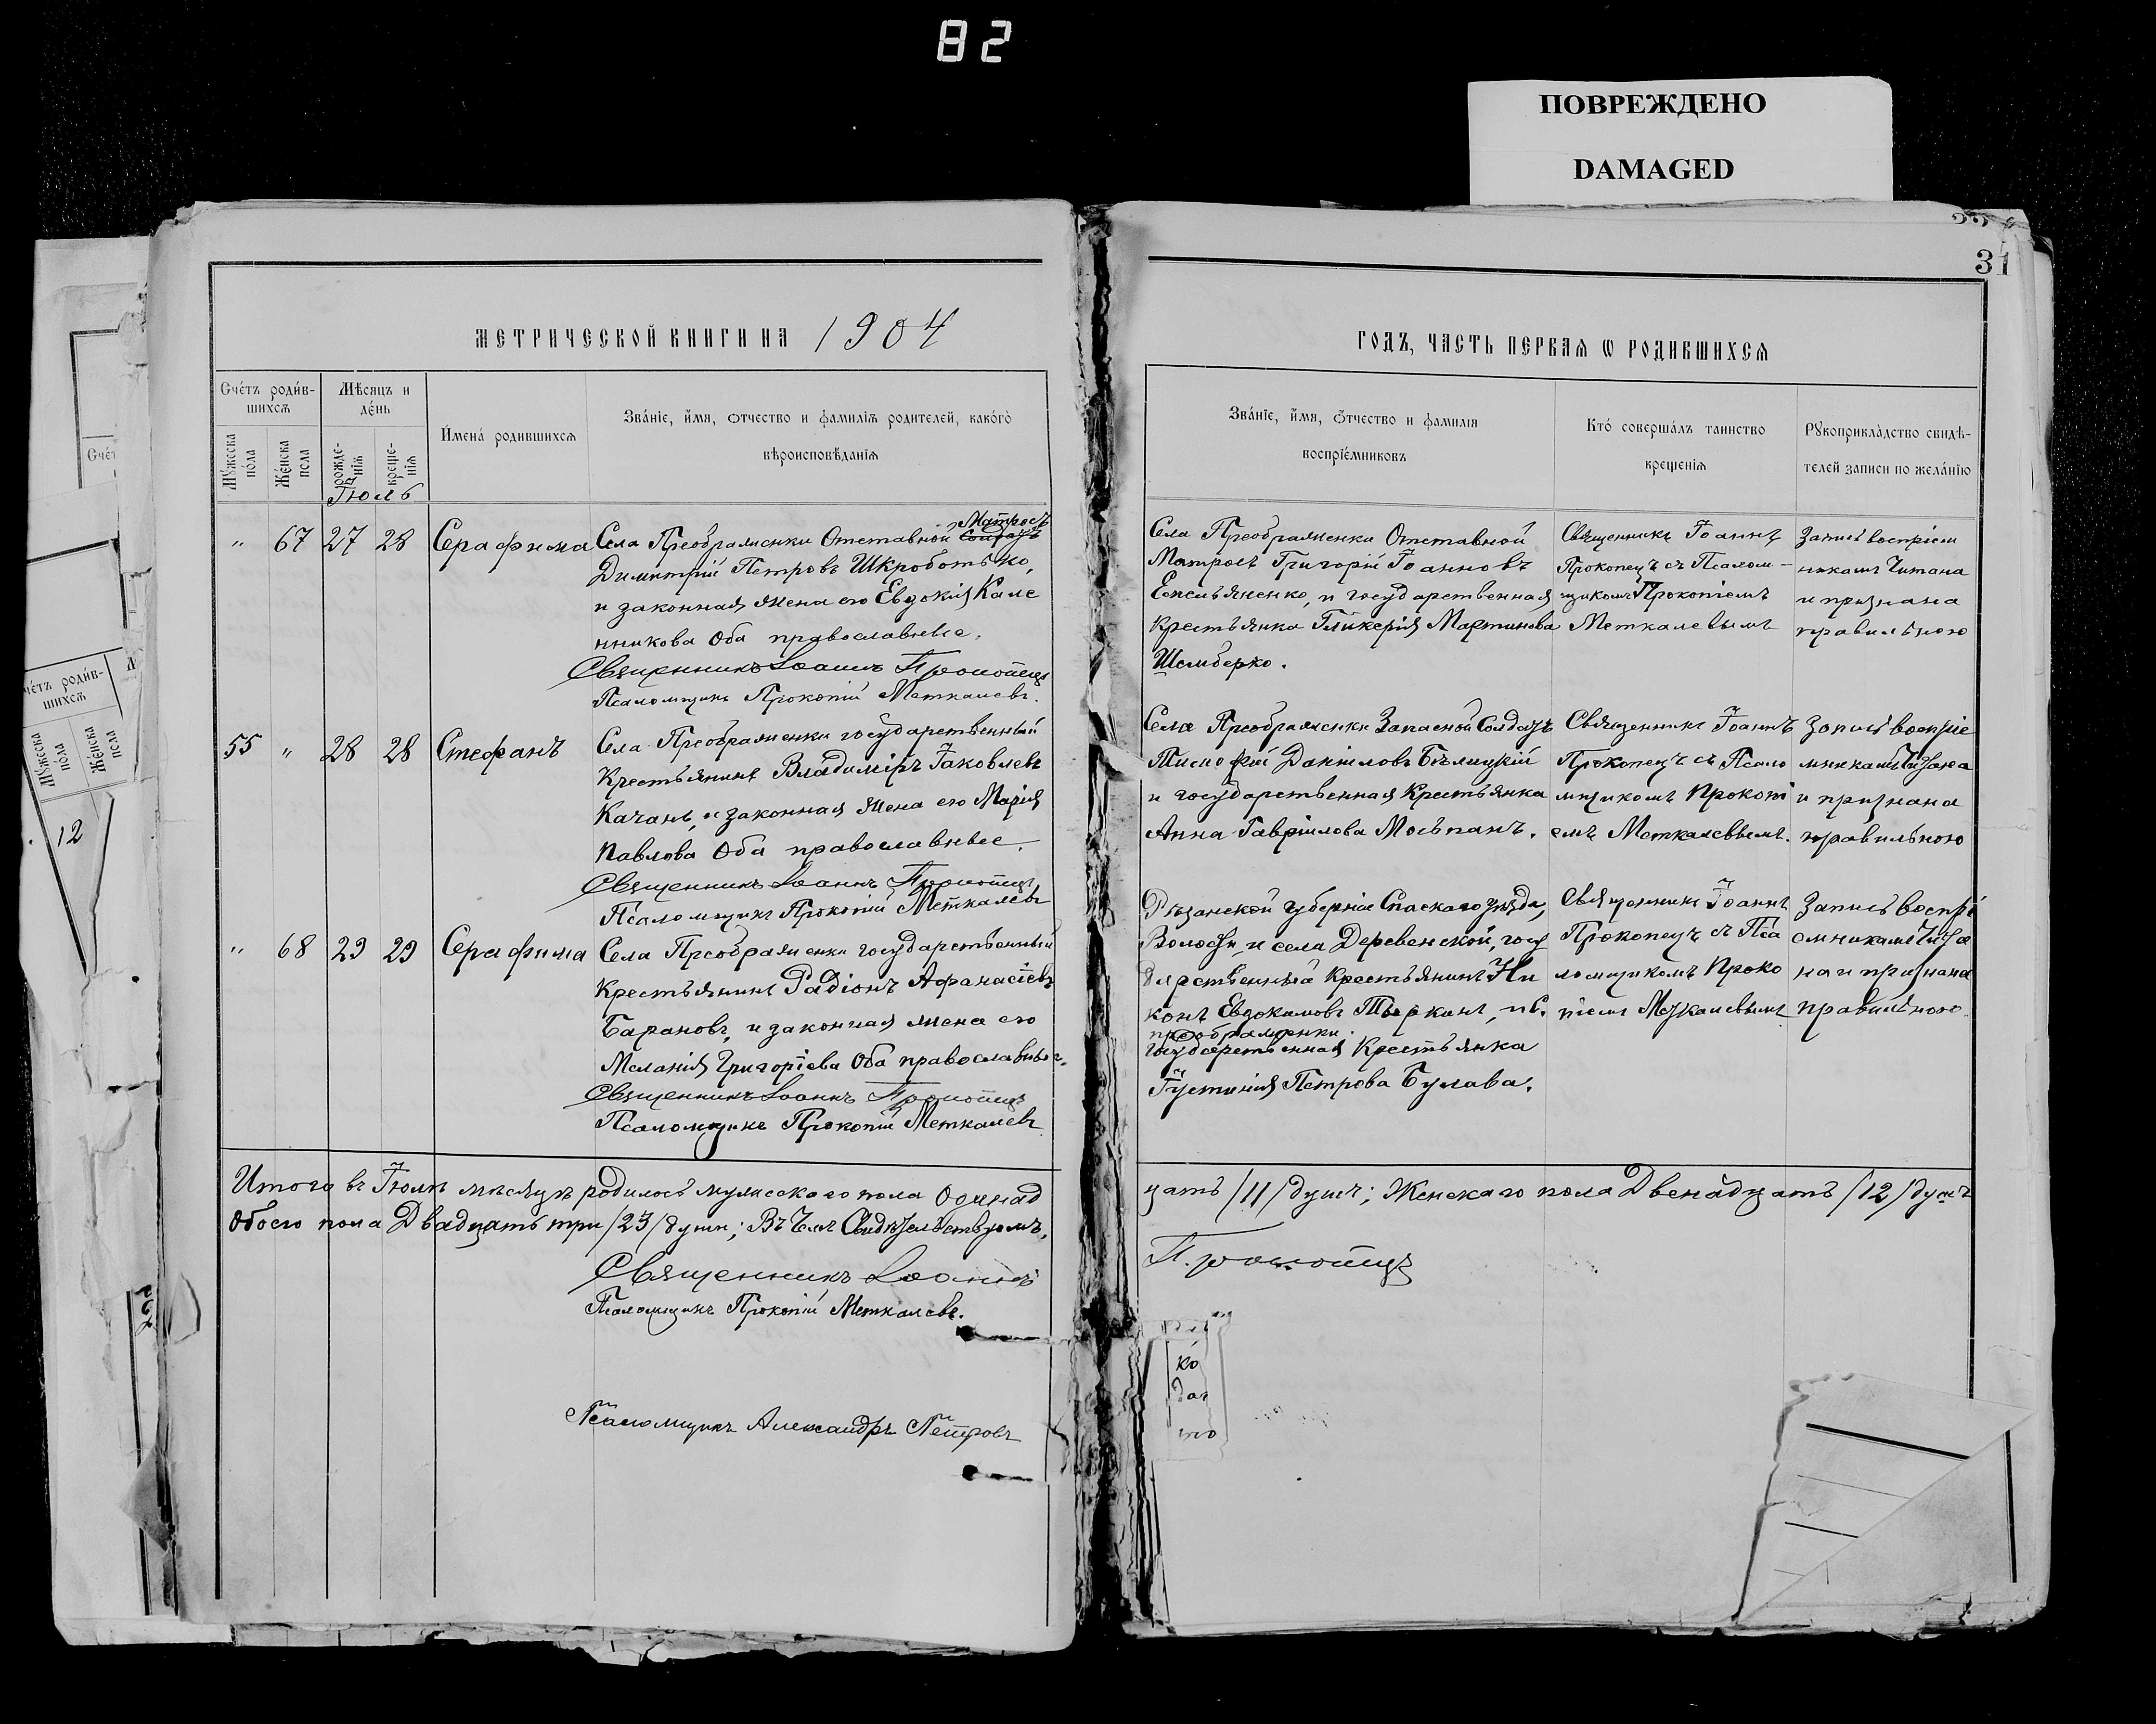 82
ПОВРЕЖДЕНО
DAMAGED
31
МЕТРИЧЕСКОЙ КНИГИ НА 1904
ГОДЪ, ЧАСТЬ ПЕРВАѦ Ѡ РОДИВШИХСѦ
Счетъ родив-
шихсѧ
Мѣсяцъ и
день
Мужеска
пола
Женска
пола
рожде-
нїѧ
креще-
нїѧ
Имена родившихсѧ
Званїе, имя, ѿчество и фамилїѧ родителей, какого
вѣроисповѣданїѧ
Званїе, имя, ѿчество и фамилїя
воспрїемниковъ
Кто совершалъ таинство
крещенїѧ
Рукоприкладство свидѣ-
телей записи по желанїю
Іюль
" 67 27 28 Серафима Села Преображенки Отставной Матросъ
Димитрій Петровъ Шкроботько,
и законная жена его Евдокія Кале
нникова Оба православные.
Священникъ Іоаннъ Прокопецъ
Псаломщикъ Прокопій Меткалевъ.
Села Преображенки Отставной
Матросъ Григорій Іоанновъ
Емельяненко, и государственная
крестьянка Гликерія Мартинова
Шемберко.
Священникъ Іоаннъ
Прокопецъ съ Псалом-
щикомъ Прокопіемъ
Меткалевымъ
Запись воспріем
никамъ Читана
и признана
правильною
55 " 28 28 Стефанъ Села Преображенки государственный
Крестьянинъ Владиміръ Іаковлевъ
Качанъ, и законная жена его Марія
Павлова Оба православные.
Священникъ Іоаннъ Прокопецъ
Псаломщикъ Прокопій Меткалевъ
Села Преображенки Запасной Солдатъ
Тимофій Даніиловъ Бѣлицкій
и государственная Крестьянка
Анна Гавріилова Мосьпанъ.
Священникъ Іоаннъ
Прокопецъ съ Псало
мщикомъ Прокопі
емъ Меткалевымъ.
Запись воспріе
мникамъ Читана
и признана
правильною
" 68 29 29 Серафима Села Преображенки государственный
Крестьянинъ Радіонъ Афанасіевъ
Барановъ, и законная жена его
Меланія Григоріева Оба православные.
Священникъ Іоаннъ Прокопецъ
Псаломщикъ Прокопій Меткалевъ
Рязанской губерніи Спаскаго уѣзда,
Волости, и села Деревенской, госу
дарственный крестьянинъ Ни
конъ Евдокимовъ Тыркинъ, и С.
преображенки
государственная Крестьянка
Іустинія Петрова Булава.
Священникъ Іоаннъ
Прокопецъ съ Пса
ломщикомъ Проко
піемъ Меткалевымъ
Запись воспрі
емникамъ Чита
на и признана
правильною
Итого въ Іюлѣ мѣсяцѣ родилось мужескаго пола Одинад
цать /11/ душъ; Женскаго пола Двенадцать /12/ душъ
Обоего пола Двадцать три /23/ души; Въ Чемъ Свидѣтельствуемъ.
Священникъ Іоаннъ Прокопецъ
Псаломщикъ Прокопій Меткалевъ.
Псаломщикъ Александръ Петровъ
Счет
четъ родив-
шихсѧ
Мужеска
пола
Женска
пола
12
ко